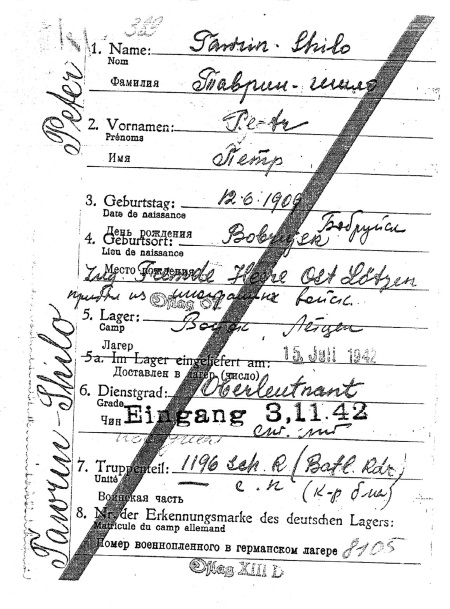 389
1. Name: Tawrin - Shilo
Nom
Фамилия Таврин - шило
2. Vornamen: Petr
Prénoms
Имя Петр
3. Geburtstag: 12.6.1909
Date de naissance
День рождения Бобруйск
4. Geburtsort: Bobrujsk
Lieu de naissance
Место рождения
Zug. Fremde Heere Ost Lötzen
прибыл из войск
Oflag 6
5. Lager:
Camp
Лагерь Лётцен
5a. Im Lager eingeliefert am: 15. Juli 1942
Доставлен в лагерь (число)
6. Dienstgrad: Oberleutnant
Grade
Чин Eingang 3.11.42
ст. лт
7. Truppenteil: 1196 Sch. R (Batl. Kdr)
Unité с. п (к-р б-на)
Воинская часть
8. Nr. der Erkennungsmarke des deutschen Lagers:
Matricule du camp allemand
Номер военнопленного в германском лагере 8105
Oflag XIII D
Tawrin-Shilo Peter